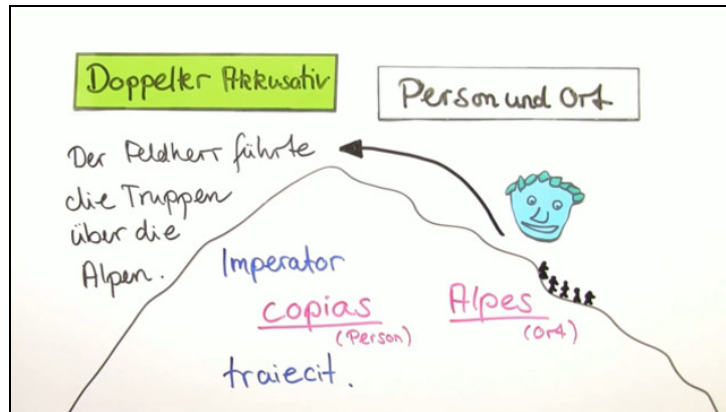 Doppelter Akkusativ
Person und Ort
Der Feldherr führte
die Truppen
über die
Alpen.
Imperator
copias
Alpes
(Person)
(Ort)
traiecit.